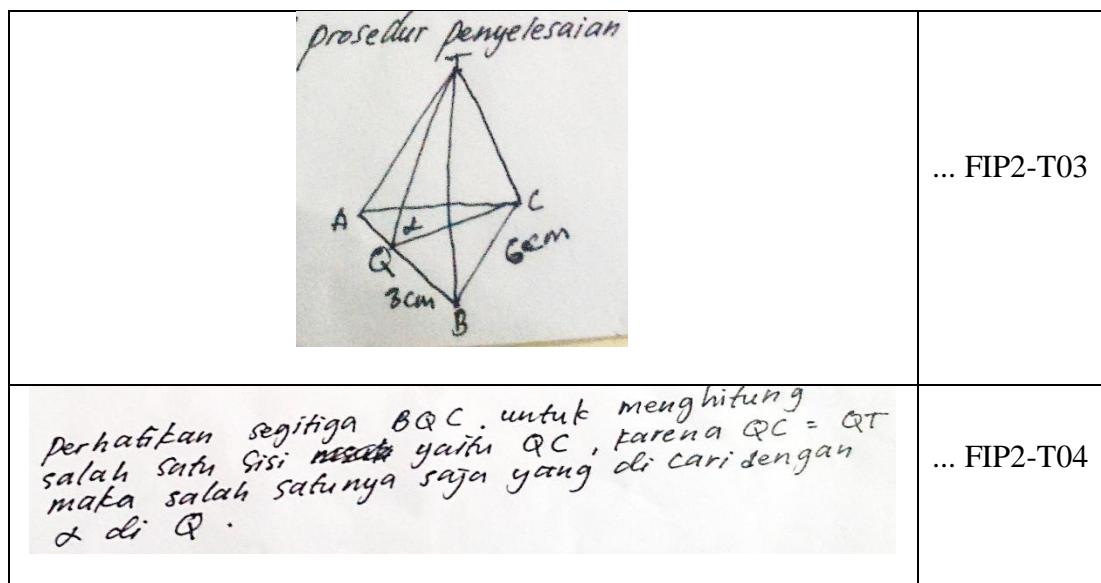 prosedur penyelesaian
T
A
C
α
Q
6cm
3cm
B
... FIP2-T03
Perhatikan segitiga BQC. untuk menghitung
salah satu sisi yaitu QC, karena QC = QT
maka salah satunya saja yang di cari dengan
α di Q.
... FIP2-T04